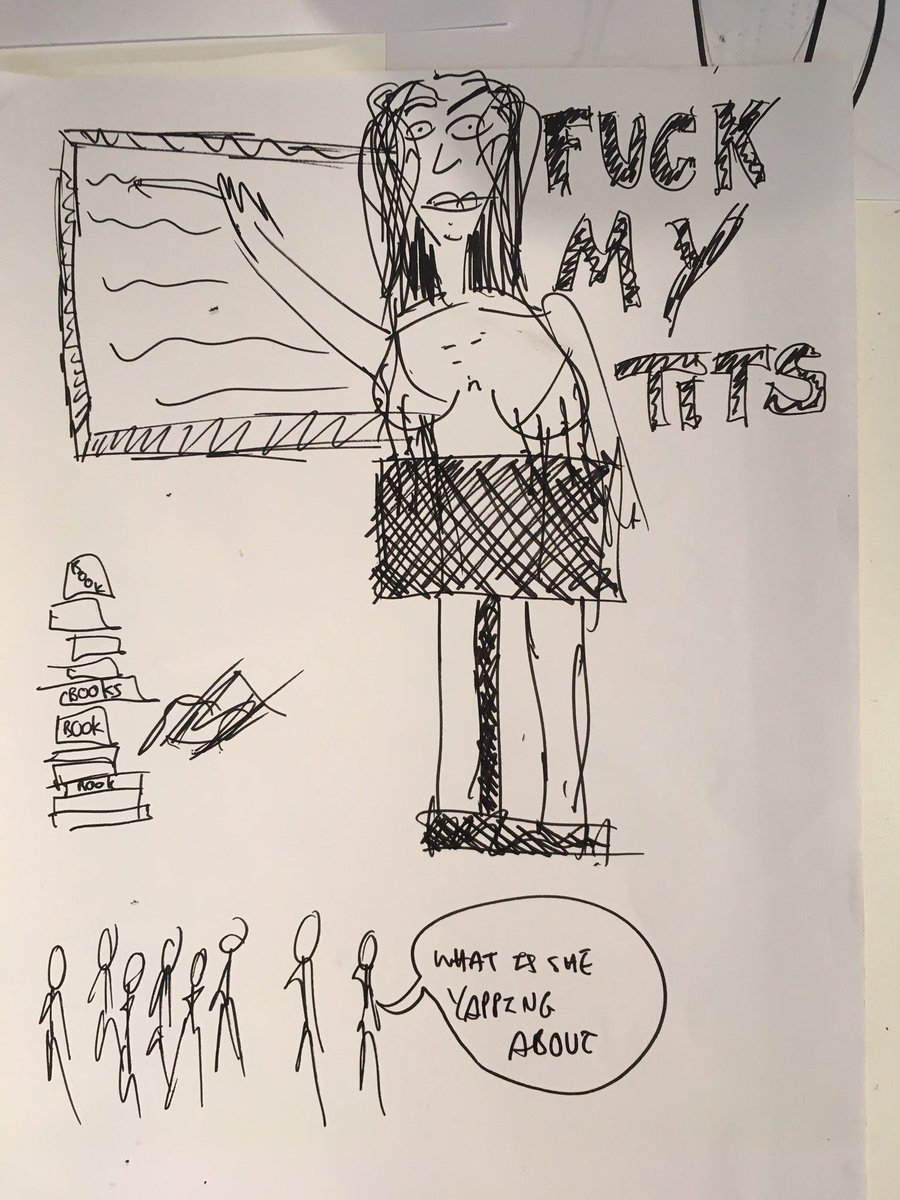 FUCK
MY
TITS
BOOK
BOOKS
BOOK
BOOK
WHAT IS SHE
YAPPING
ABOUT